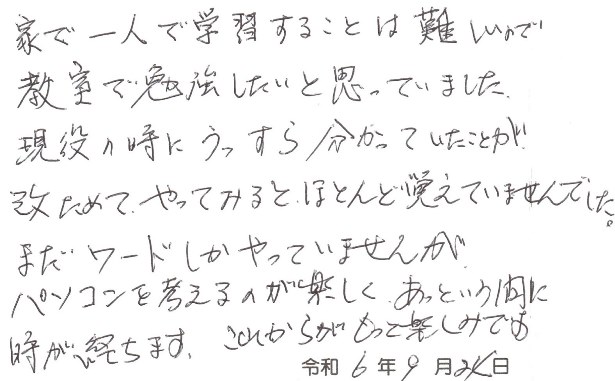 家で一人で学習することは難しいので
教室で勉強したいと思っていました。
現役の時にうっすら分かっていたことが
改ためて、やってみると、ほとんど覚えていませんでした。
まだワードしかやっていませんが
パソコンを考えるのが楽しく、あっという間に
時が経ちます、これからがもっと楽しみです
令和 6 年 9 月 日